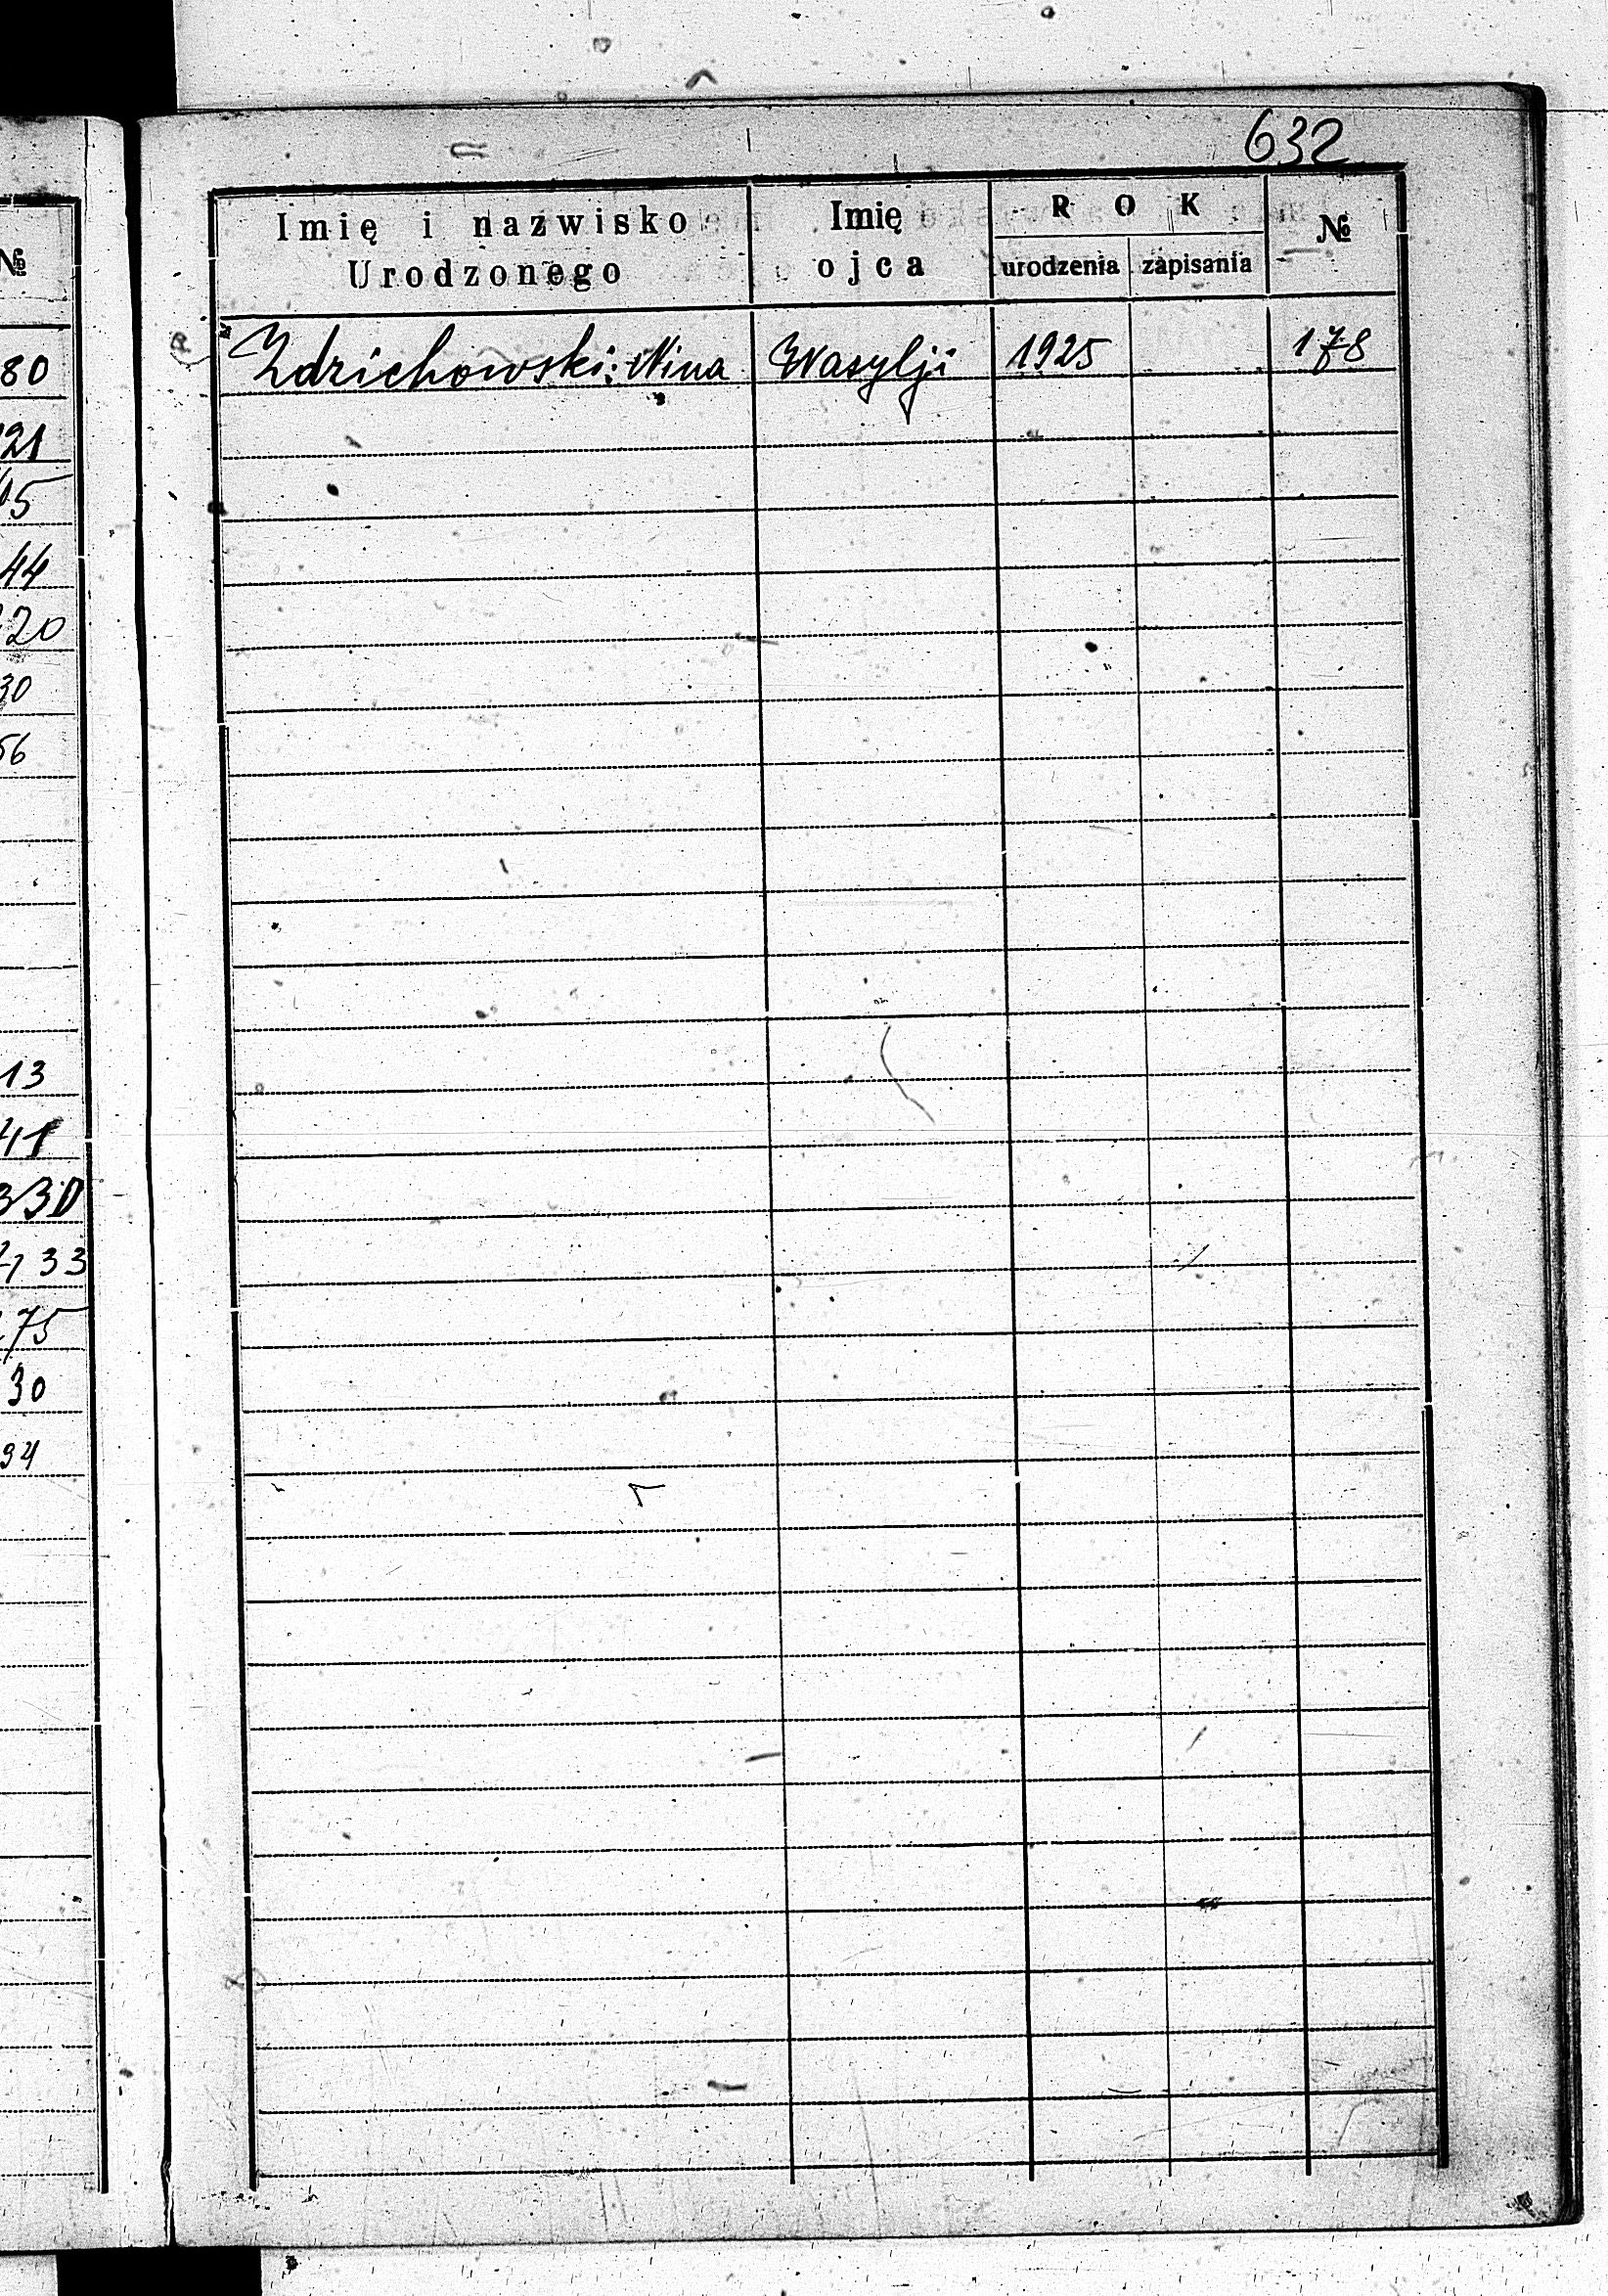 632
Imię i nazwisko Urodzonego Imię ojca ROK urodzenia zapisania №
Zdrichowski: Nina Wasylji 1925 178
№
80
21
15
44
20
30
56
13
41
330
133
75
30
94